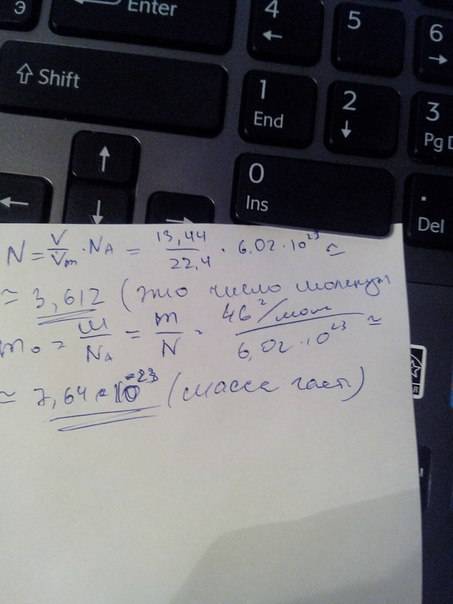 Э
Enter
4
←
5
6
→
⇧ Shift
1
End
2
↓
3
Pg D
↑
0
Ins
.
Del
←
↓
→
N = V/Vm · NA = 13,44/22,4 · 6.02 · 10²³ ≃
≃ 3,612 (это число молекул
m₀ = M/NA = m/N = 46 г/моль / 6,02 · 10²³ ≃
≃ 7,64 · 10⁻²³ (масса част)